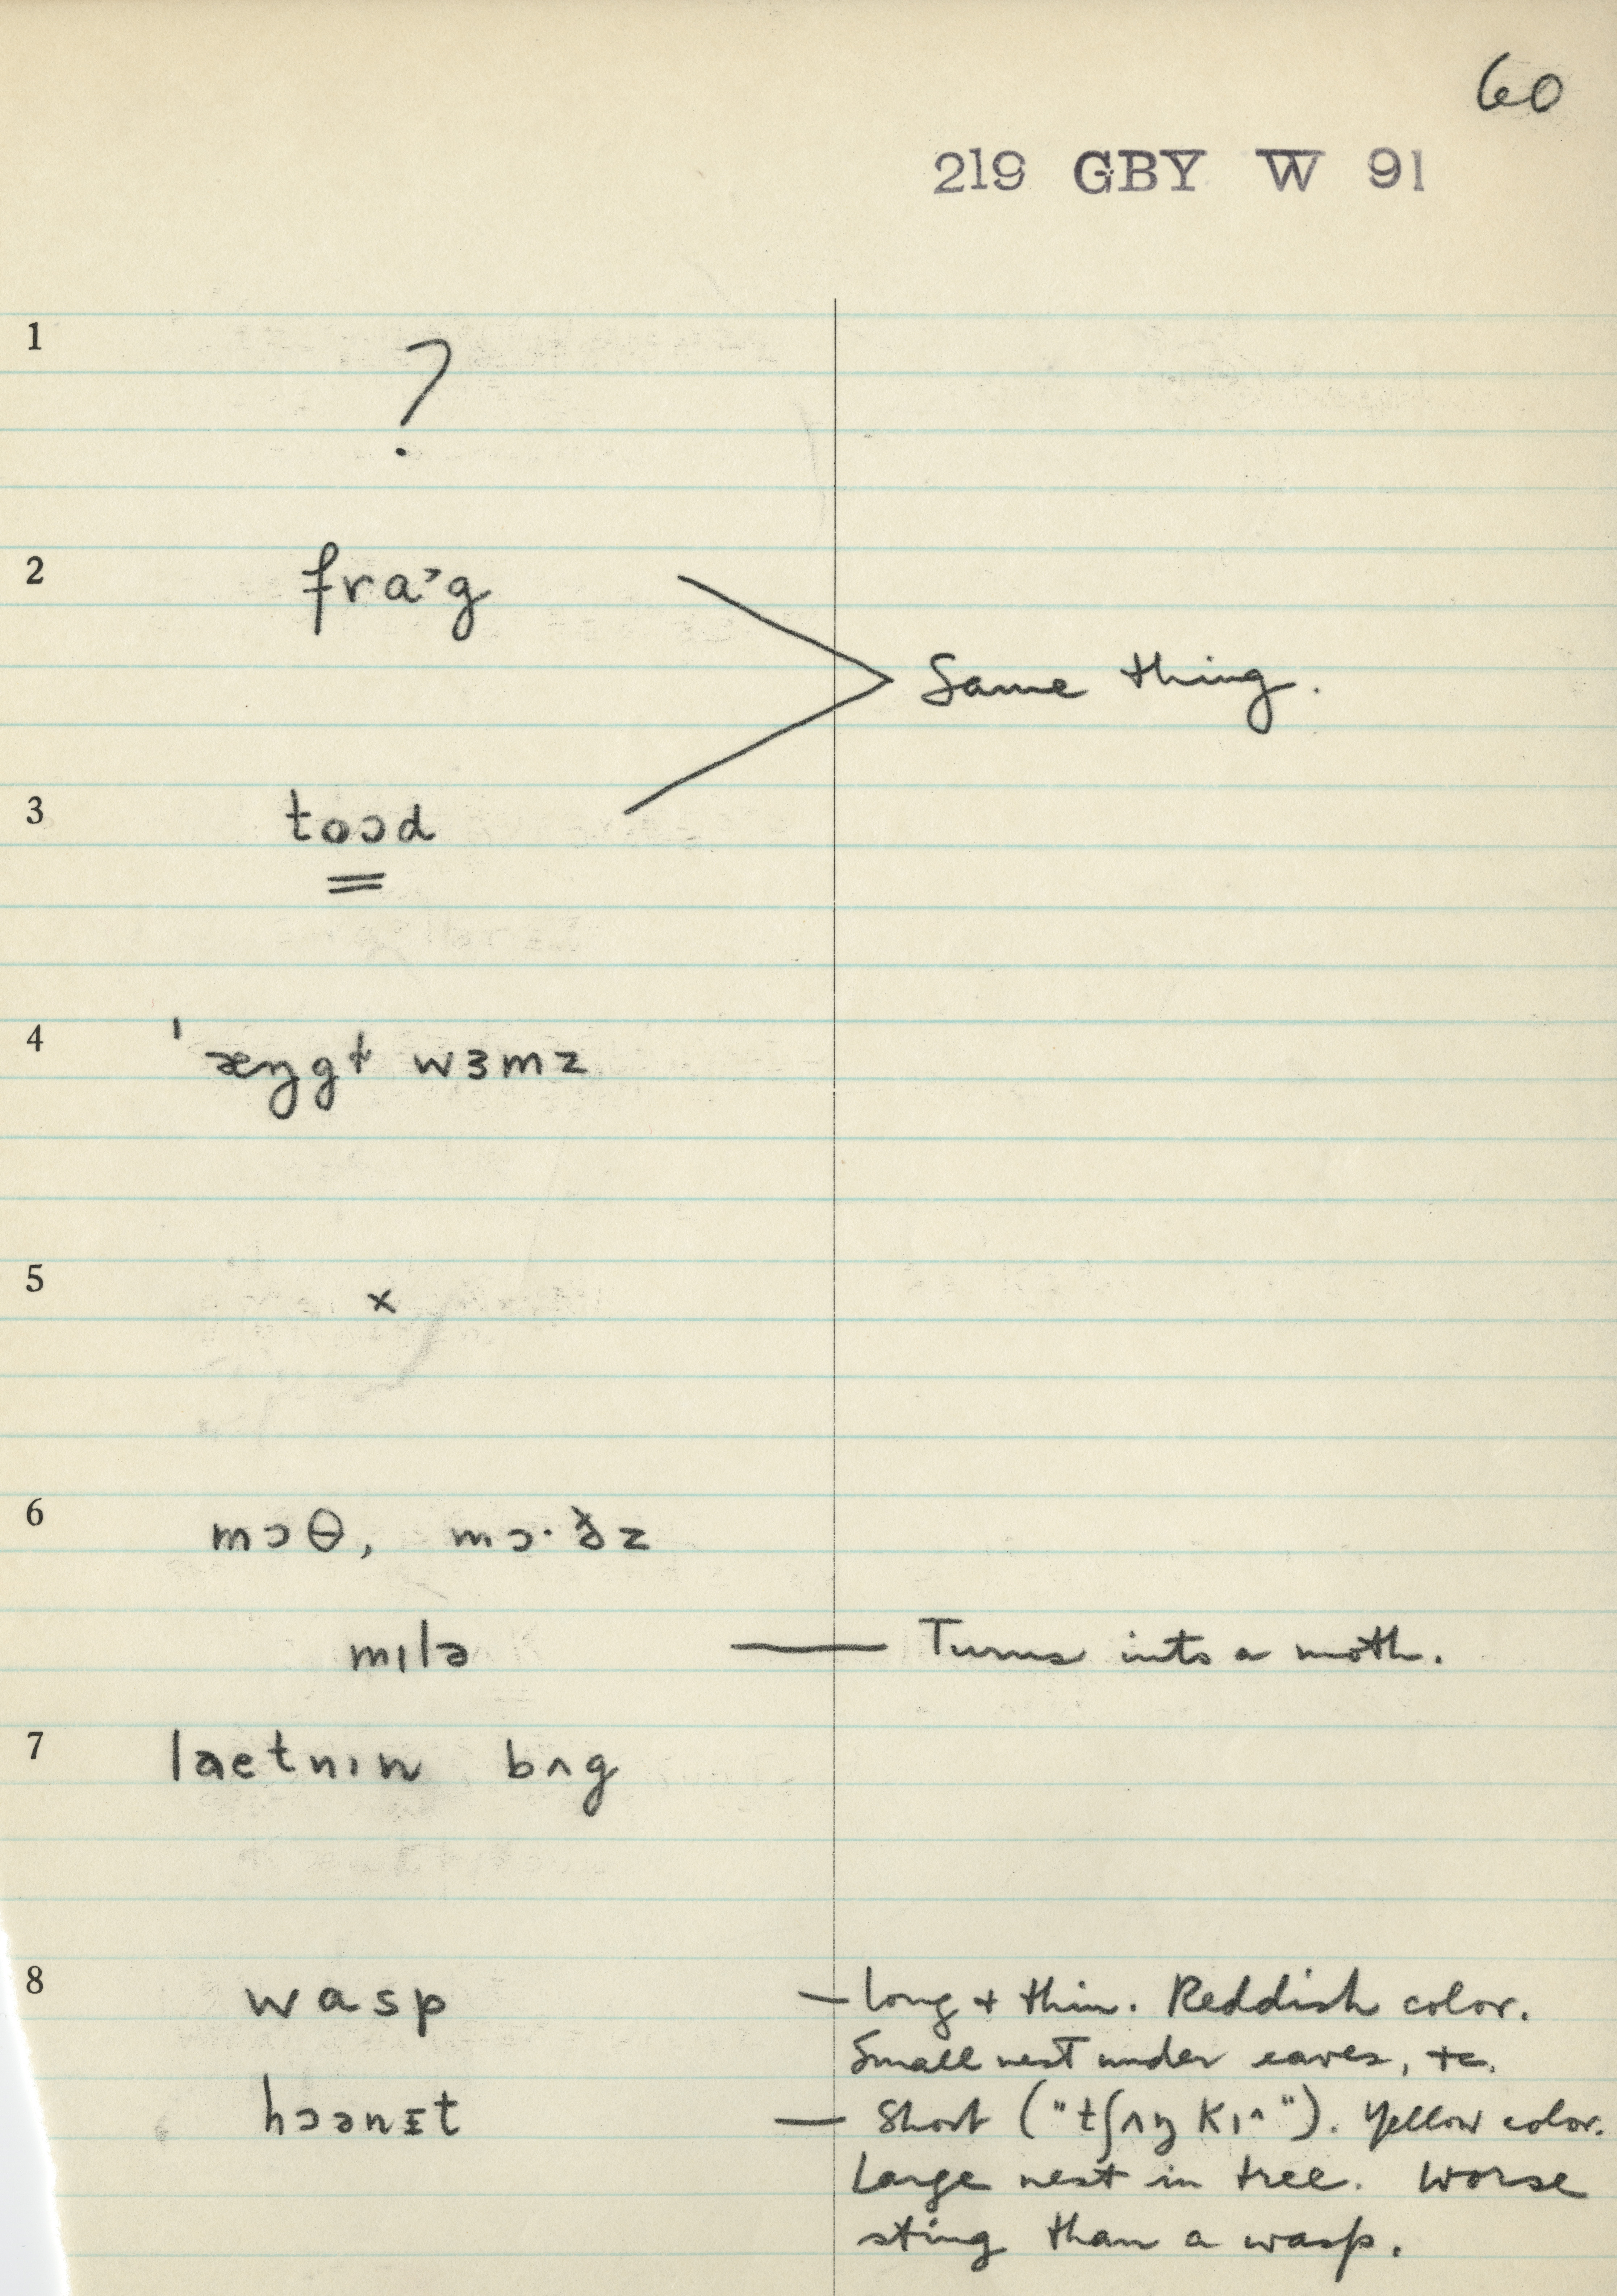 60
219 GBY W 91
1
?
2 fra˒g
Same thing.
3 toɔd
4 ˈæŋgɫ wɜmz
5 ×
6 mɔθ, mɔ·ðz
mɪlə — Turns into a moth.
7 laetnɪn bʌg
8 wasp — long + thin. Reddish color.
Small nest under eaves, etc.
hɔənɪt — Short ("tʃʌŋkɪ^"). Yellow color.
Large nest in tree. Worse
sting than a wasp.